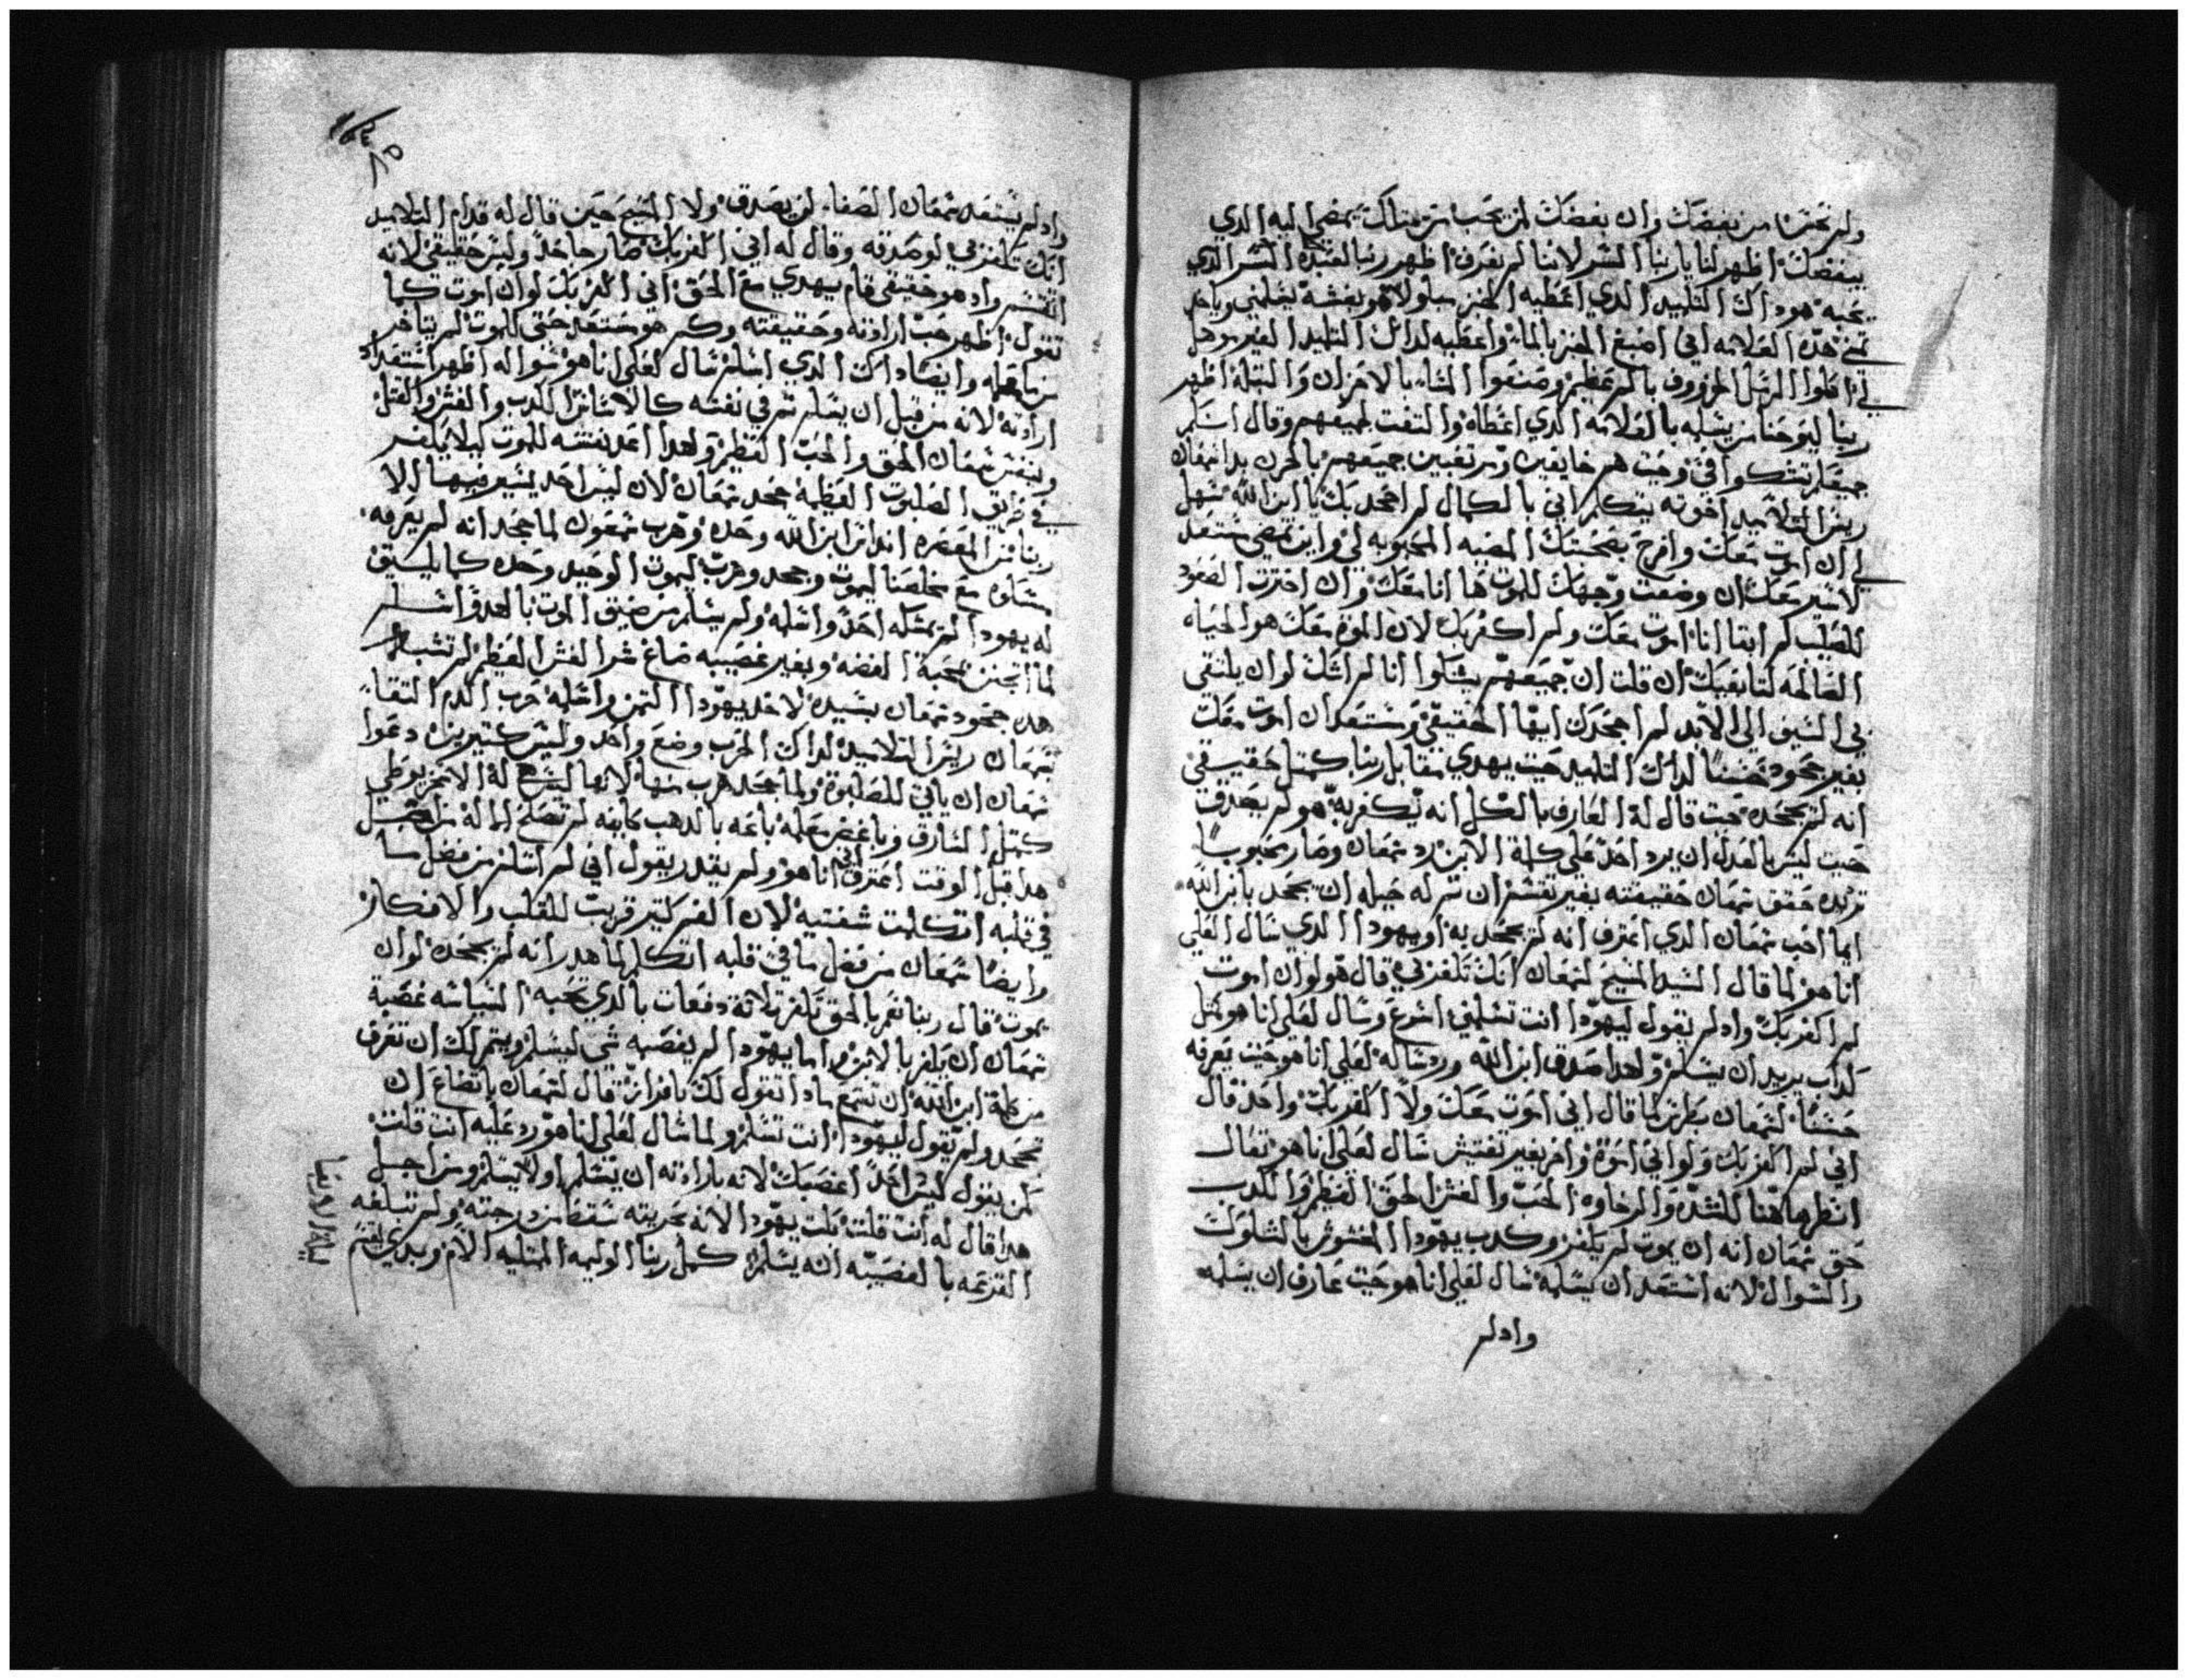 ولم تختزا من يفضك وان يفضك لمن يحب من هناك يمضي اليه الدي
يبغضك اظهر لنا يا ربنا السر لاننا لم نعرف اظهر ربنا لعبده السر الدي
يحبه هوداك التلميد الدي اعطيه الخبز مبلولا هو بفسه يسلمني وياخد
هده العلامه اني اصبغ الخبز بالماء واعطيه لداك التلميد الغير
اكلوا الرسل الخروف بالمر عظيم وصنعوا العشاء بالاحزان والليله اظهر
ربنا ليوحنا من يسلمه بالعلامه الدي اعطاه والتفت لجميعهم وقال اسلم
جميعكم تشكوا في وحيت هم خايفين ومرتعبين جميعهم بالحزن بدا شمعان
ريس التلاميد اخوته يتكلم اني بالكمال لم اجحد بك يا ابن الله سهل
لي ان اموت معك وافرح بصحبتك المضيه المحبوبه لي واين تمضي مستعد
لاسير معك ان وضعت وجهك للموت ها انا معك وان اخترت الصعود
للصليب لم ابقا انا اموت معك ولم اكفر بك لان الموت معك هو الحياه
الصالحه لتابعيك ان قلت ان جميعهم يشكوا انا لم اشك لو ان يلتقي
بي السيف الى الابد لم اجحدك ايها الحقيقي ومستعد ان اموت معك
بغير جحود حسنا لداك التلميد حيت يهدي مقابل ربنا كمتل حقيقي
انه لم يجحده حيت قال له العارف بالكل انه يكفر به هو لم يصدق
حيت ليس بالعدل ان يرد احد على كلمة الابن رد شمعان وصار محبوبا
حقق شمعان حقيقته بغير تفتيش ان له حيله ان يجحد بابن الله
ايما احب شمعان الدي اعترف انه لم يجحد به او يهودا الدي سال لعلي
انا هو لما قال السيد المسيح لشمعان انك تكفر بي قال هو لو ان اموت
لم اكفر بك واد لم يقول ليهودا انت تسلمني اسرع وسال لعلي انا هو كمتل
كداب يريد ان يسلم ولهدا صدق ابن الله ورد ساله لعلي انا هو حيت يعرفه
حسنا لشمعان بطرس لما قال اني اموت معك ولا اكفر بك واحد قال
اني لم اكفر بك ولو اني اموت واخر بغير تفتيش سال لعلي انا هو تعال
انظر ها هنا للشده والرخاوه الحب والغش الحق العظيم والكدب
حق شمعان انه ان يموت لم يكفر وكدب يهودا المغشوش بالسلوك
والسوال لانه استعد ان يسلمه سال لعلي انا هو حيت عارف ان يسلمه
واد لم
٨٥
واد لم يستعد شمعان الصفا لم يصدق ولا المسيح حين قال له قدام التلاميد
انك تكفر بي لو صدقه وقال له اني اكفر بك صار جاحدا وليس حقيقي لانه
واد هو حقيقي قام يهدي مع الحق اني اكفر بك لو ان اموت كما
تقول اظهر حب ارادته وحقيقته وكم هو مستعد حتى للموت لم يتاخر
من ما قبله وايضا داك الدي اسلم سال لعلي انا هو سواله اظهر استعداد
ارادته لانه من قبل ان يسلم شر في نفسه كالانسان الكدب والغش والقتل
وبنفس شمعان الحق والحب العظيم ولهدا اعد نفسه للموت كيلا يكفر
في طريق الصلبوت العظيمة جحد شمعان لان ليس احد يسير فيها الا
ربنا من المعصره انداس ابن الله وحده وهرب شمعون لما جحد انه لم يعرفه
مساوه مع مخلصنا ليموت وجحد وهرب ليموت الوحيد وحده كما يليق
له يهودا لم يمسكه احد واسلمه ولم يسلم من ضيق الموت بالعدو اسلم
لما انجنن بمحبة الفضه وبغير غصيبه صاغ شر الغش العظيم لم تشبه
هده جحود شمعان بسيده لاخد يهودا التمن واسلمه حرب الدم التقا
بشمعان ريس التلاميد لداك الحرب وضع واحد وليس كتيرين دعوا
شمعان ان ياتي للصلبوة ولما جحد هرب منها لانها ليس له الاخر يوطي
كمتل السارق وباغض معلمه باعه بالدهب
هدا قبل الوقت اعترف اني انا هو ولم يقدر يقول اني لم اسلم من فضل ما
في قلبه اتكلمت شفتيه لان الفم كتير قريب للقلب والافكار
وايضا شمعان من فضل ما في قلبه اتكلم لما هدر انه لم يجحده لو ان
يموت قال ربنا نعم بالحق تكفر تلاتة دفعات بالدي تحبه السياسه غصبة
شمعان ان يكفر بالابن واما يهودا لم يغصبه شي ليسلم ويتم لك ان تعرف
من كلمة ابن الله ان تسمع مادا تقول لك بافراز قال لشمعان باتضاع ان
تجحد ولم يقول ليهودا انت تسلم ولما سال لعلي انا هو رد عليه انت قلت
كمن يقول ليس احد اغصبك لانه بارادته ان يسلم او لا يسلم ومن اجل
هدا قال له انت قلت يهودا لانه بحريته سقط من درجته ولم تبلغه
القرعه بالغصيبه انه يسلم كمل ربنا الوليمه الممتليه الام وبدي يقسم